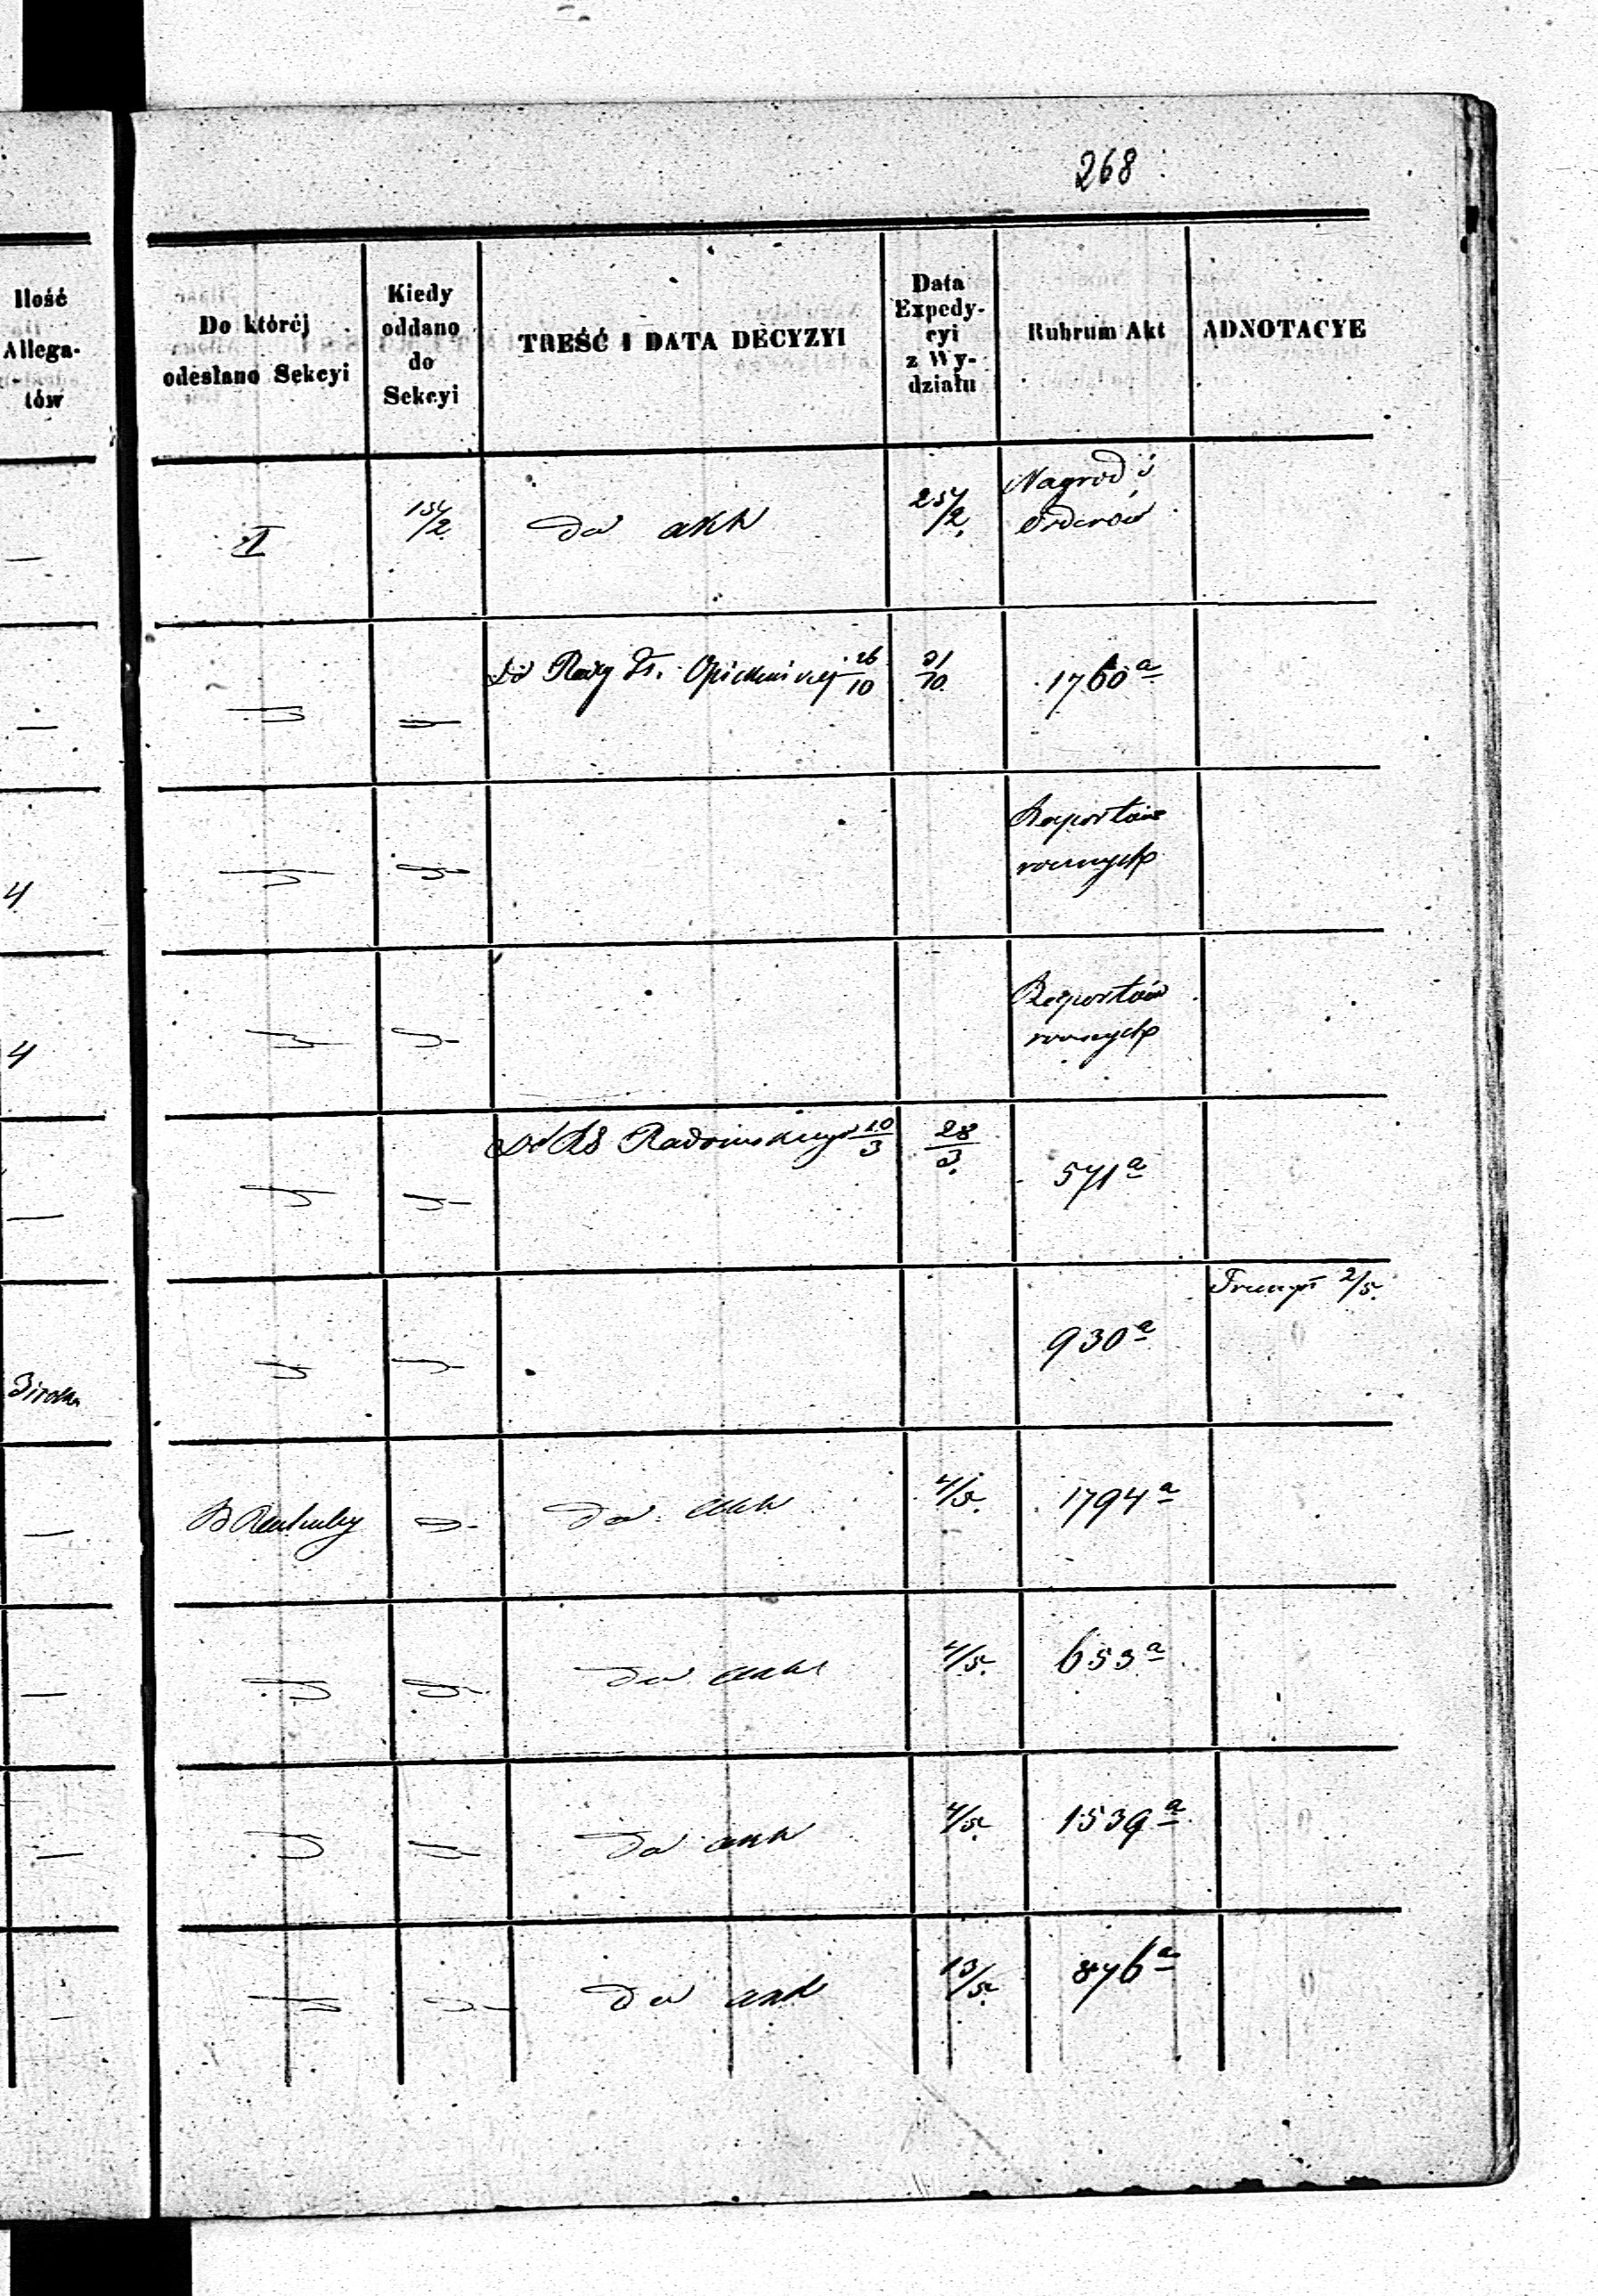 268
Ilość
Allega-
tów
Do któréj
odesłano Sekcyi
Kiedy
oddano
do
Sekcyi
TREŚĆ I DATA DECYZYI
Data
Expedy-
cyi
z Wy-
działu
Rubrum Akt
ADNOTACYE
—
I
do akt
Nagród i
Orderów
—
Opiekuńczej 26/10
31/10
1760 a
4
Raportów
rocznych
4
Raportów
rocznych
—
10/3
28/3
571 a
930 a
2/5
—
do akt
4/5
1794 a
—
do akt
4/5
653 a
—
do akt
4/5
1539 a
—
do akt
13/5
876 a